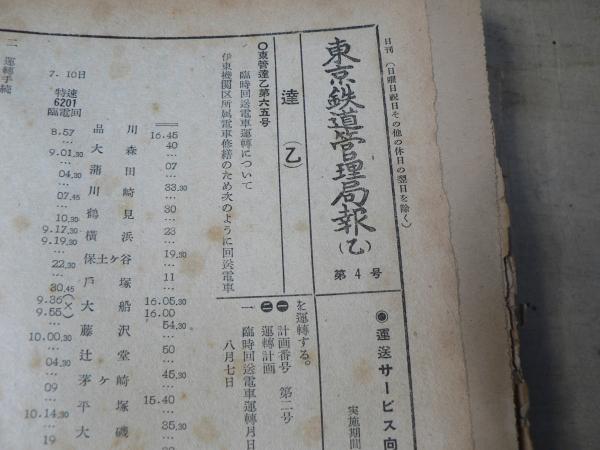 日刊(日曜日祝日その他の休日の翌日を除く)
東京鉄道管理局報(乙)
第4号
◉運送サービス向
実施期間
達(乙)
〇東管達乙第六五号
臨時回送電車運転について
伊東機関区所属電車修繕のため次のように回送電車
を運轉する。
㊀ 計画番号 第二号
㊁ 運轉計画
一 臨時回送電車運轉月日
八月七日
二 運轉手続
7. 10日
特速
6201
臨電回
8.57 品川 16.45
… 大森 40
9.01.30 … …
… 蒲田 07
04.30 … …
… 川崎 33.30
07.45 … …
… 鶴見 30
10.30 … …
9.17.30 横浜 23
9.19.30 … …
… 保土ヶ谷 19.30
22.30 … …
… 戸塚 11
30.45 … …
9.36(×) 大船 16.05.30
9.55 16.00
… 藤沢 54.30
10.00.30 … …
… 辻堂 50
04.30 … …
… 茅ヶ崎 45.30
09 … …
… 平塚 15.40
10.14.30 … …
… 大磯 35.30
19 … …